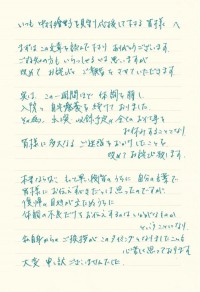 いつも 咲村良子を見守り応援して下さる皆様 へ
まずはこの文章を読んで下さり ありがとうございます。
ご存知の方も いらっしゃると思いますが
改めて お詫びと ご報告をさせていただきます。
実は、この一週間ほど 体調を崩し
入院と 自宅療養を続けておりました。
その為、出演・収録予定の全てのお仕事を
お休みすることとなり
皆様に多大なるご迷惑をおかけしたことを
改めてお詫び致します。
本来ならば もっと早い段階のうちに 自分の言葉で
皆様にお伝えすべきだとは思ったのですが、
復帰の目処が立たぬうちに
体調の不良だけをお伝えするのはいかがなものか
ということになり、
私自身からのご挨拶がこのタイミングになりましたことを
心苦しく思っております。
大変 申し訳ございませんでした。